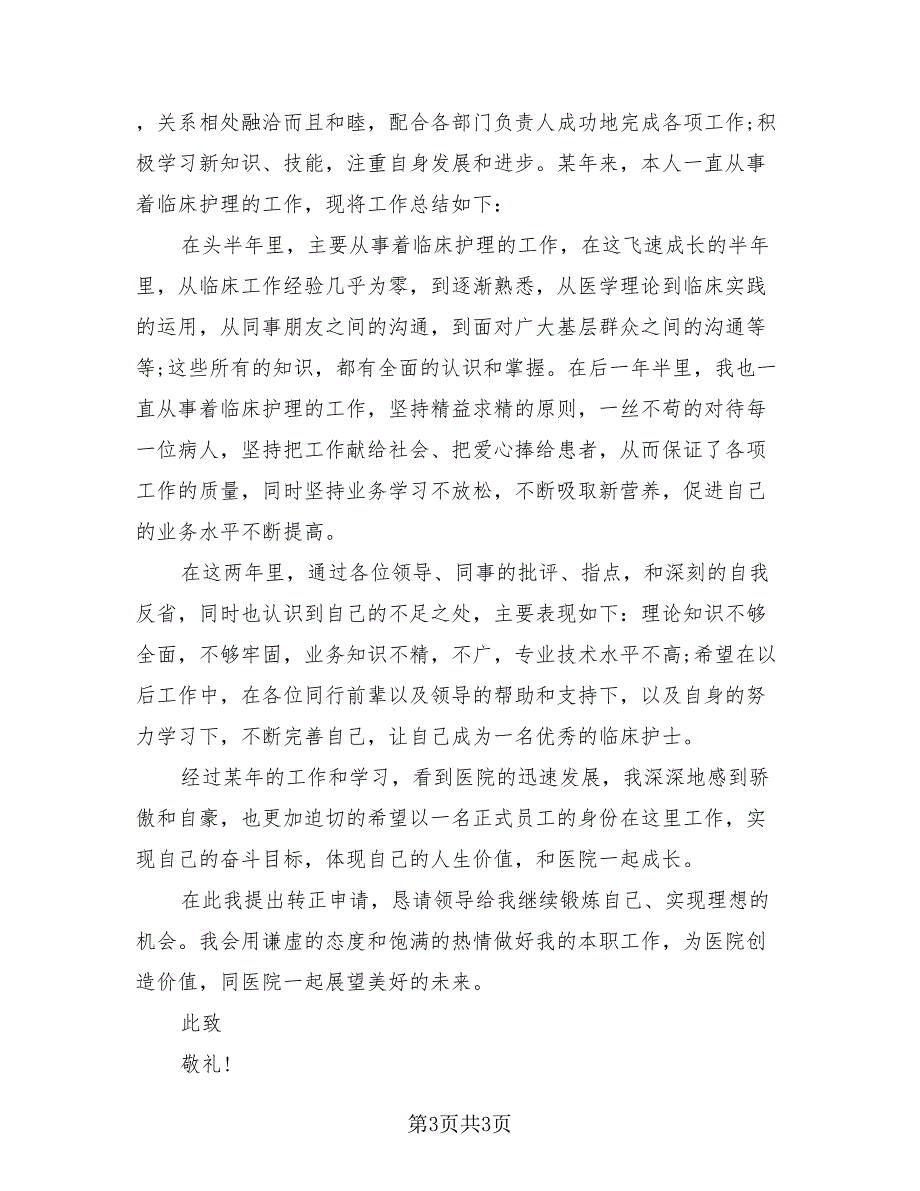 ，关系相处融洽而且和睦，配合各部门负责人成功地完成各项工作;积
极学习新知识、技能，注重自身发展和进步。某年来，本人一直从事
着临床护理的工作，现将工作总结如下：
在头半年里，主要从事着临床护理的工作，在这飞速成长的半年
里，从临床工作经验几乎为零，到逐渐熟悉，从医学理论到临床实践
的运用，从同事朋友之间的沟通，到面对广大基层群众之间的沟通等
等;这些所有的知识，都有全面的认识和掌握。在后一年半里，我也一
直从事着临床护理的工作，坚持精益求精的原则，一丝不苟的对待每
一位病人，坚持把工作献给社会、把爱心捧给患者，从而保证了各项
工作的质量，同时坚持业务学习不放松，不断吸取新营养，促进自己
的业务水平不断提高。
在这两年里，通过各位领导、同事的批评、指点，和深刻的自我
反省，同时也认识到自己的不足之处，主要表现如下：理论知识不够
全面，不够牢固，业务知识不精，不广，专业技术水平不高;希望在以
后工作中，在各位同行前辈以及领导的帮助和支持下，以及自身的努
力学习下，不断完善自己，让自己成为一名优秀的临床护士。
经过某年的工作和学习，看到医院的迅速发展，我深深地感到骄
傲和自豪，也更加迫切的希望以一名正式员工的身份在这里工作，实
现自己的奋斗目标，体现自己的人生价值，和医院一起成长。
在此我提出转正申请，恳请领导给我继续锻炼自己、实现理想的
机会。我会用谦虚的态度和饱满的热情做好我的本职工作，为医院创
造价值，同医院一起展望美好的未来。
此致
敬礼!
第3页共3页